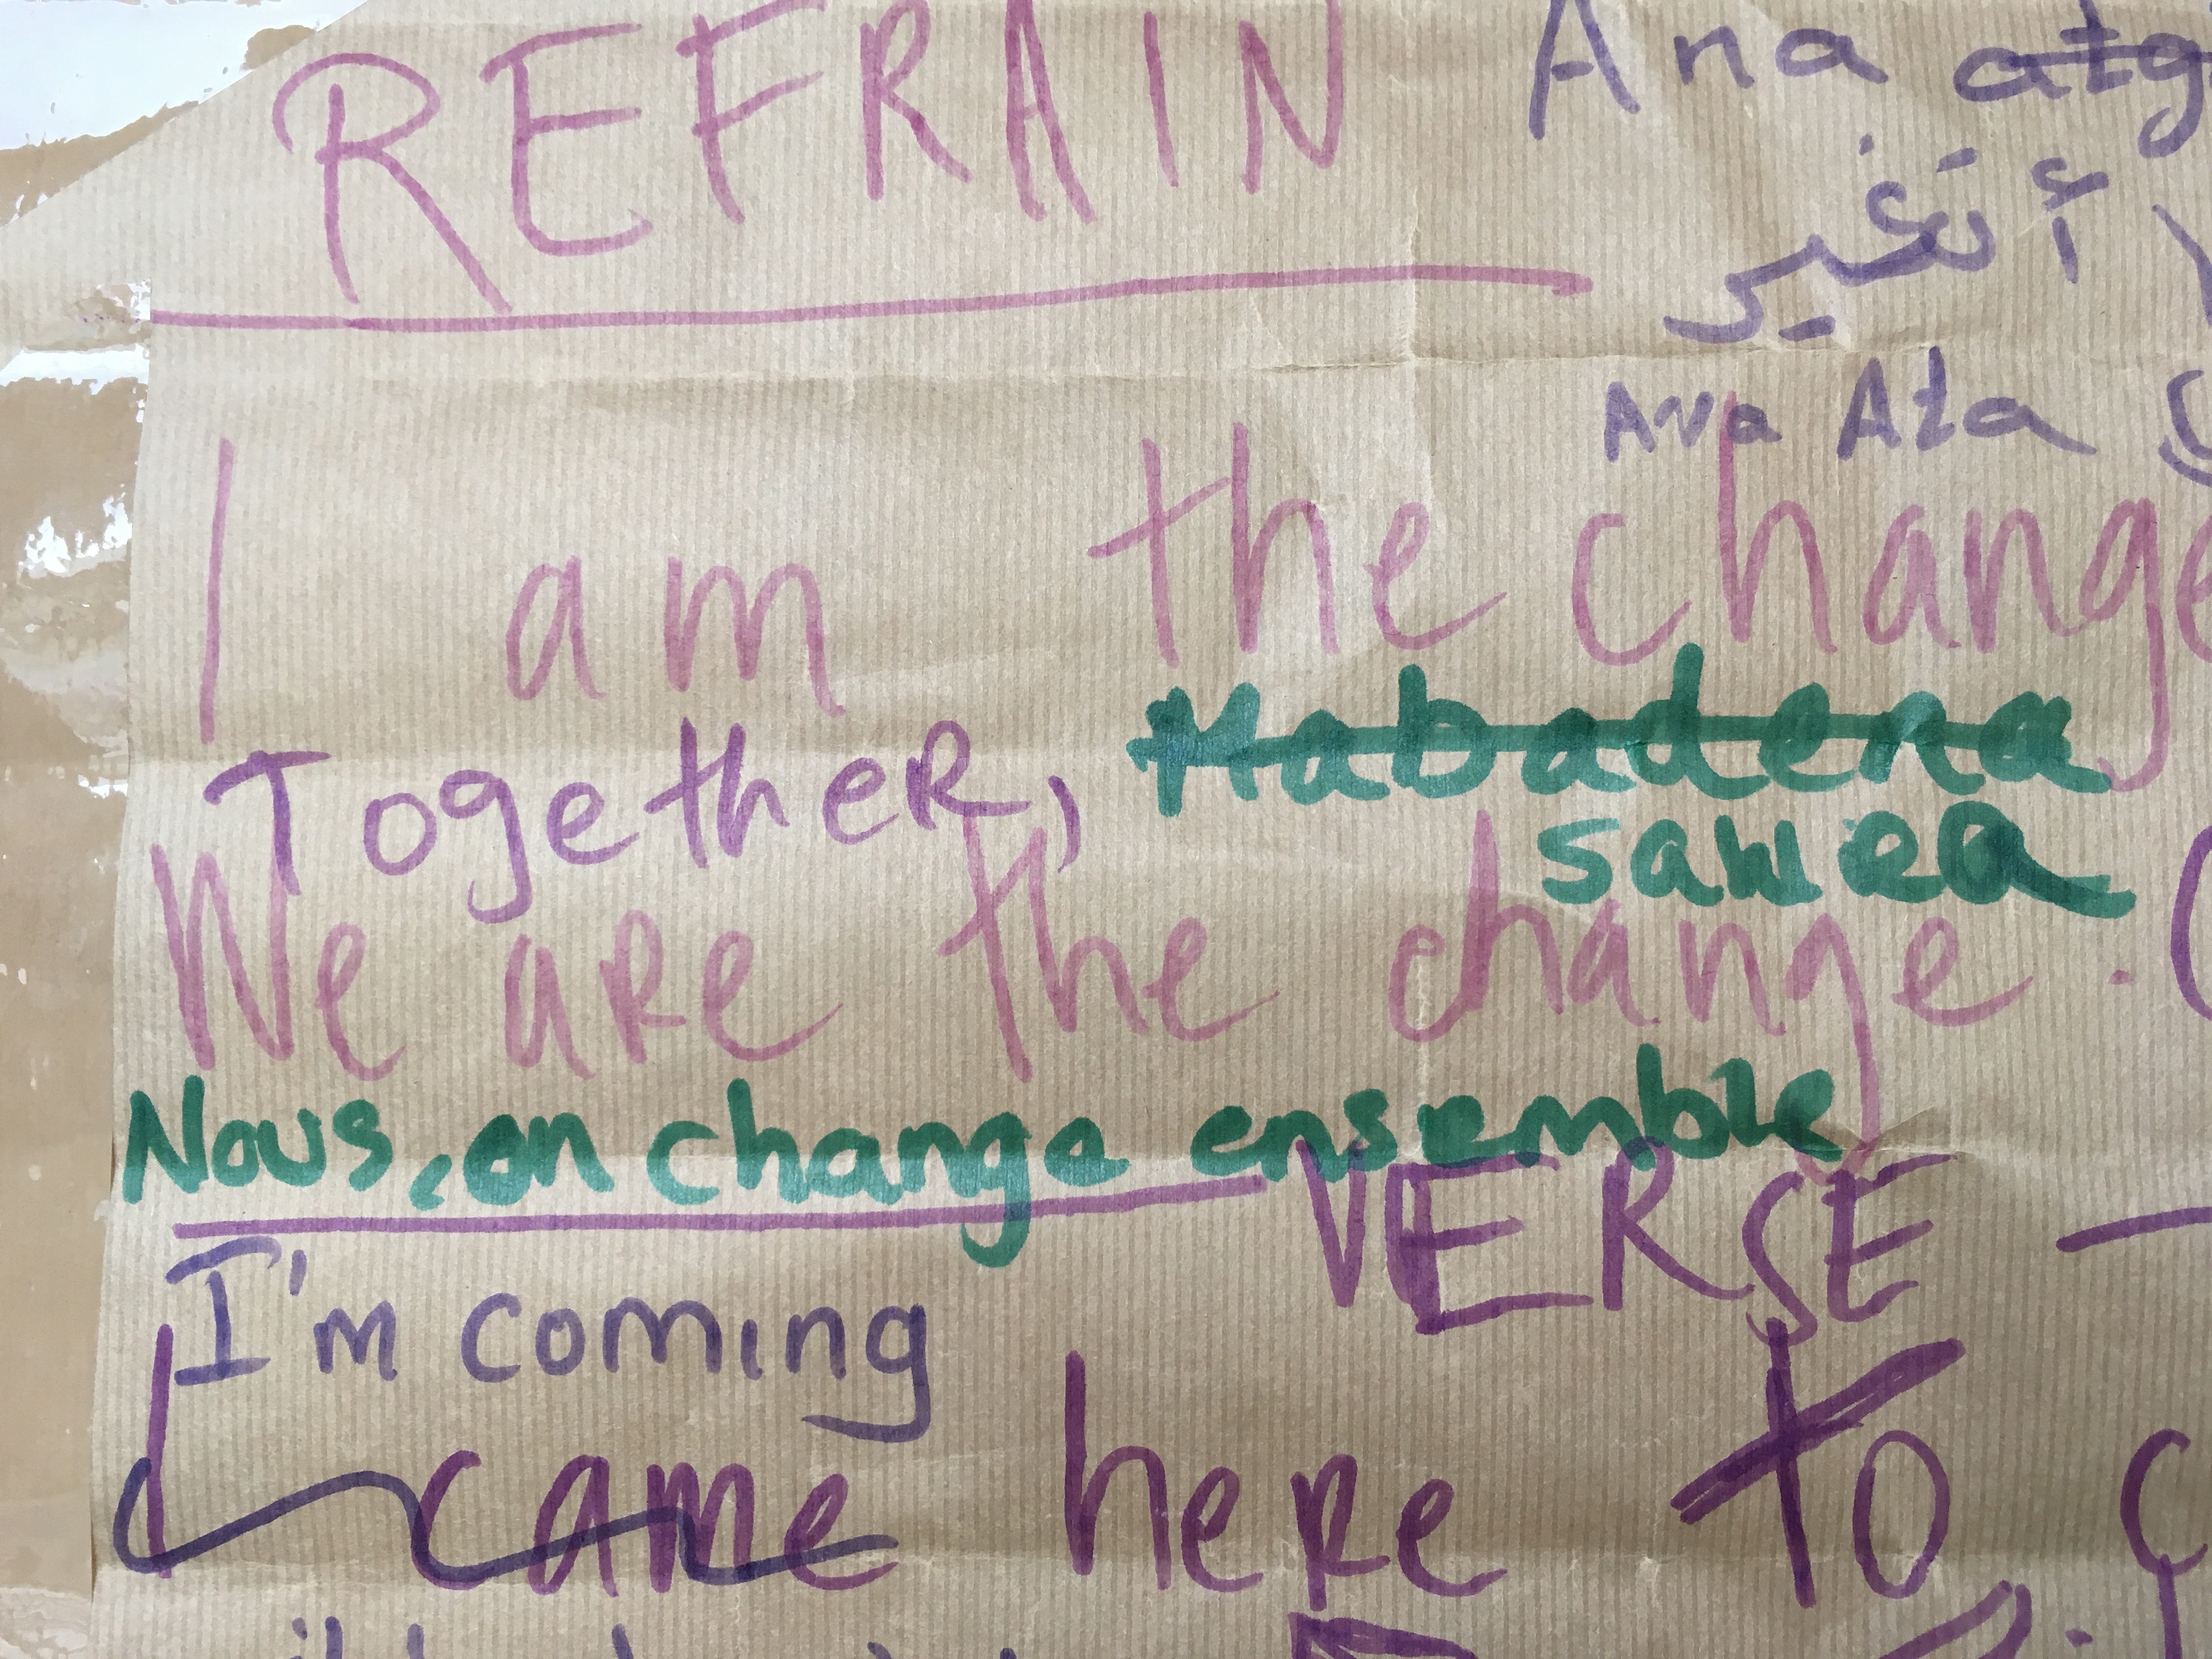 REFRAIN
Ana
أتغير
Ana Ata
I am the change
Together, Habadena
sawea
We are the change.
Nous, on change ensemble
VERSE
I'm coming
I came here to